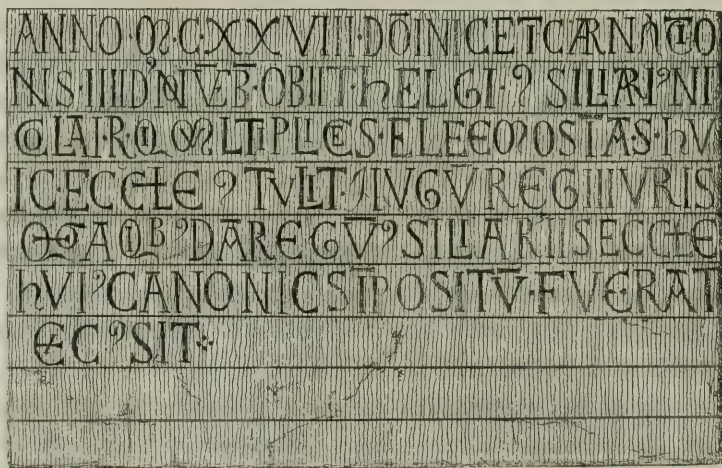 ANNO·M·C·XXVIII·DŌINICE ĪCARNACĪO
NIS·IIII D' NOVĒB̄·OBIIT·hELGI·ꝯSILIARI'NI
COLAI·R·Q MVLTIPLICES·ELEEMOSĪAS·hV
IC·ECCLE ꝯTVLIT·IVGV̄ REGII IVRIS
A QB' DĀ REGV̄ ꝯSILIARIIS ECCLE
hVI' CANONICS ĪPOSITV̄·FVERAT
ꝯSIT